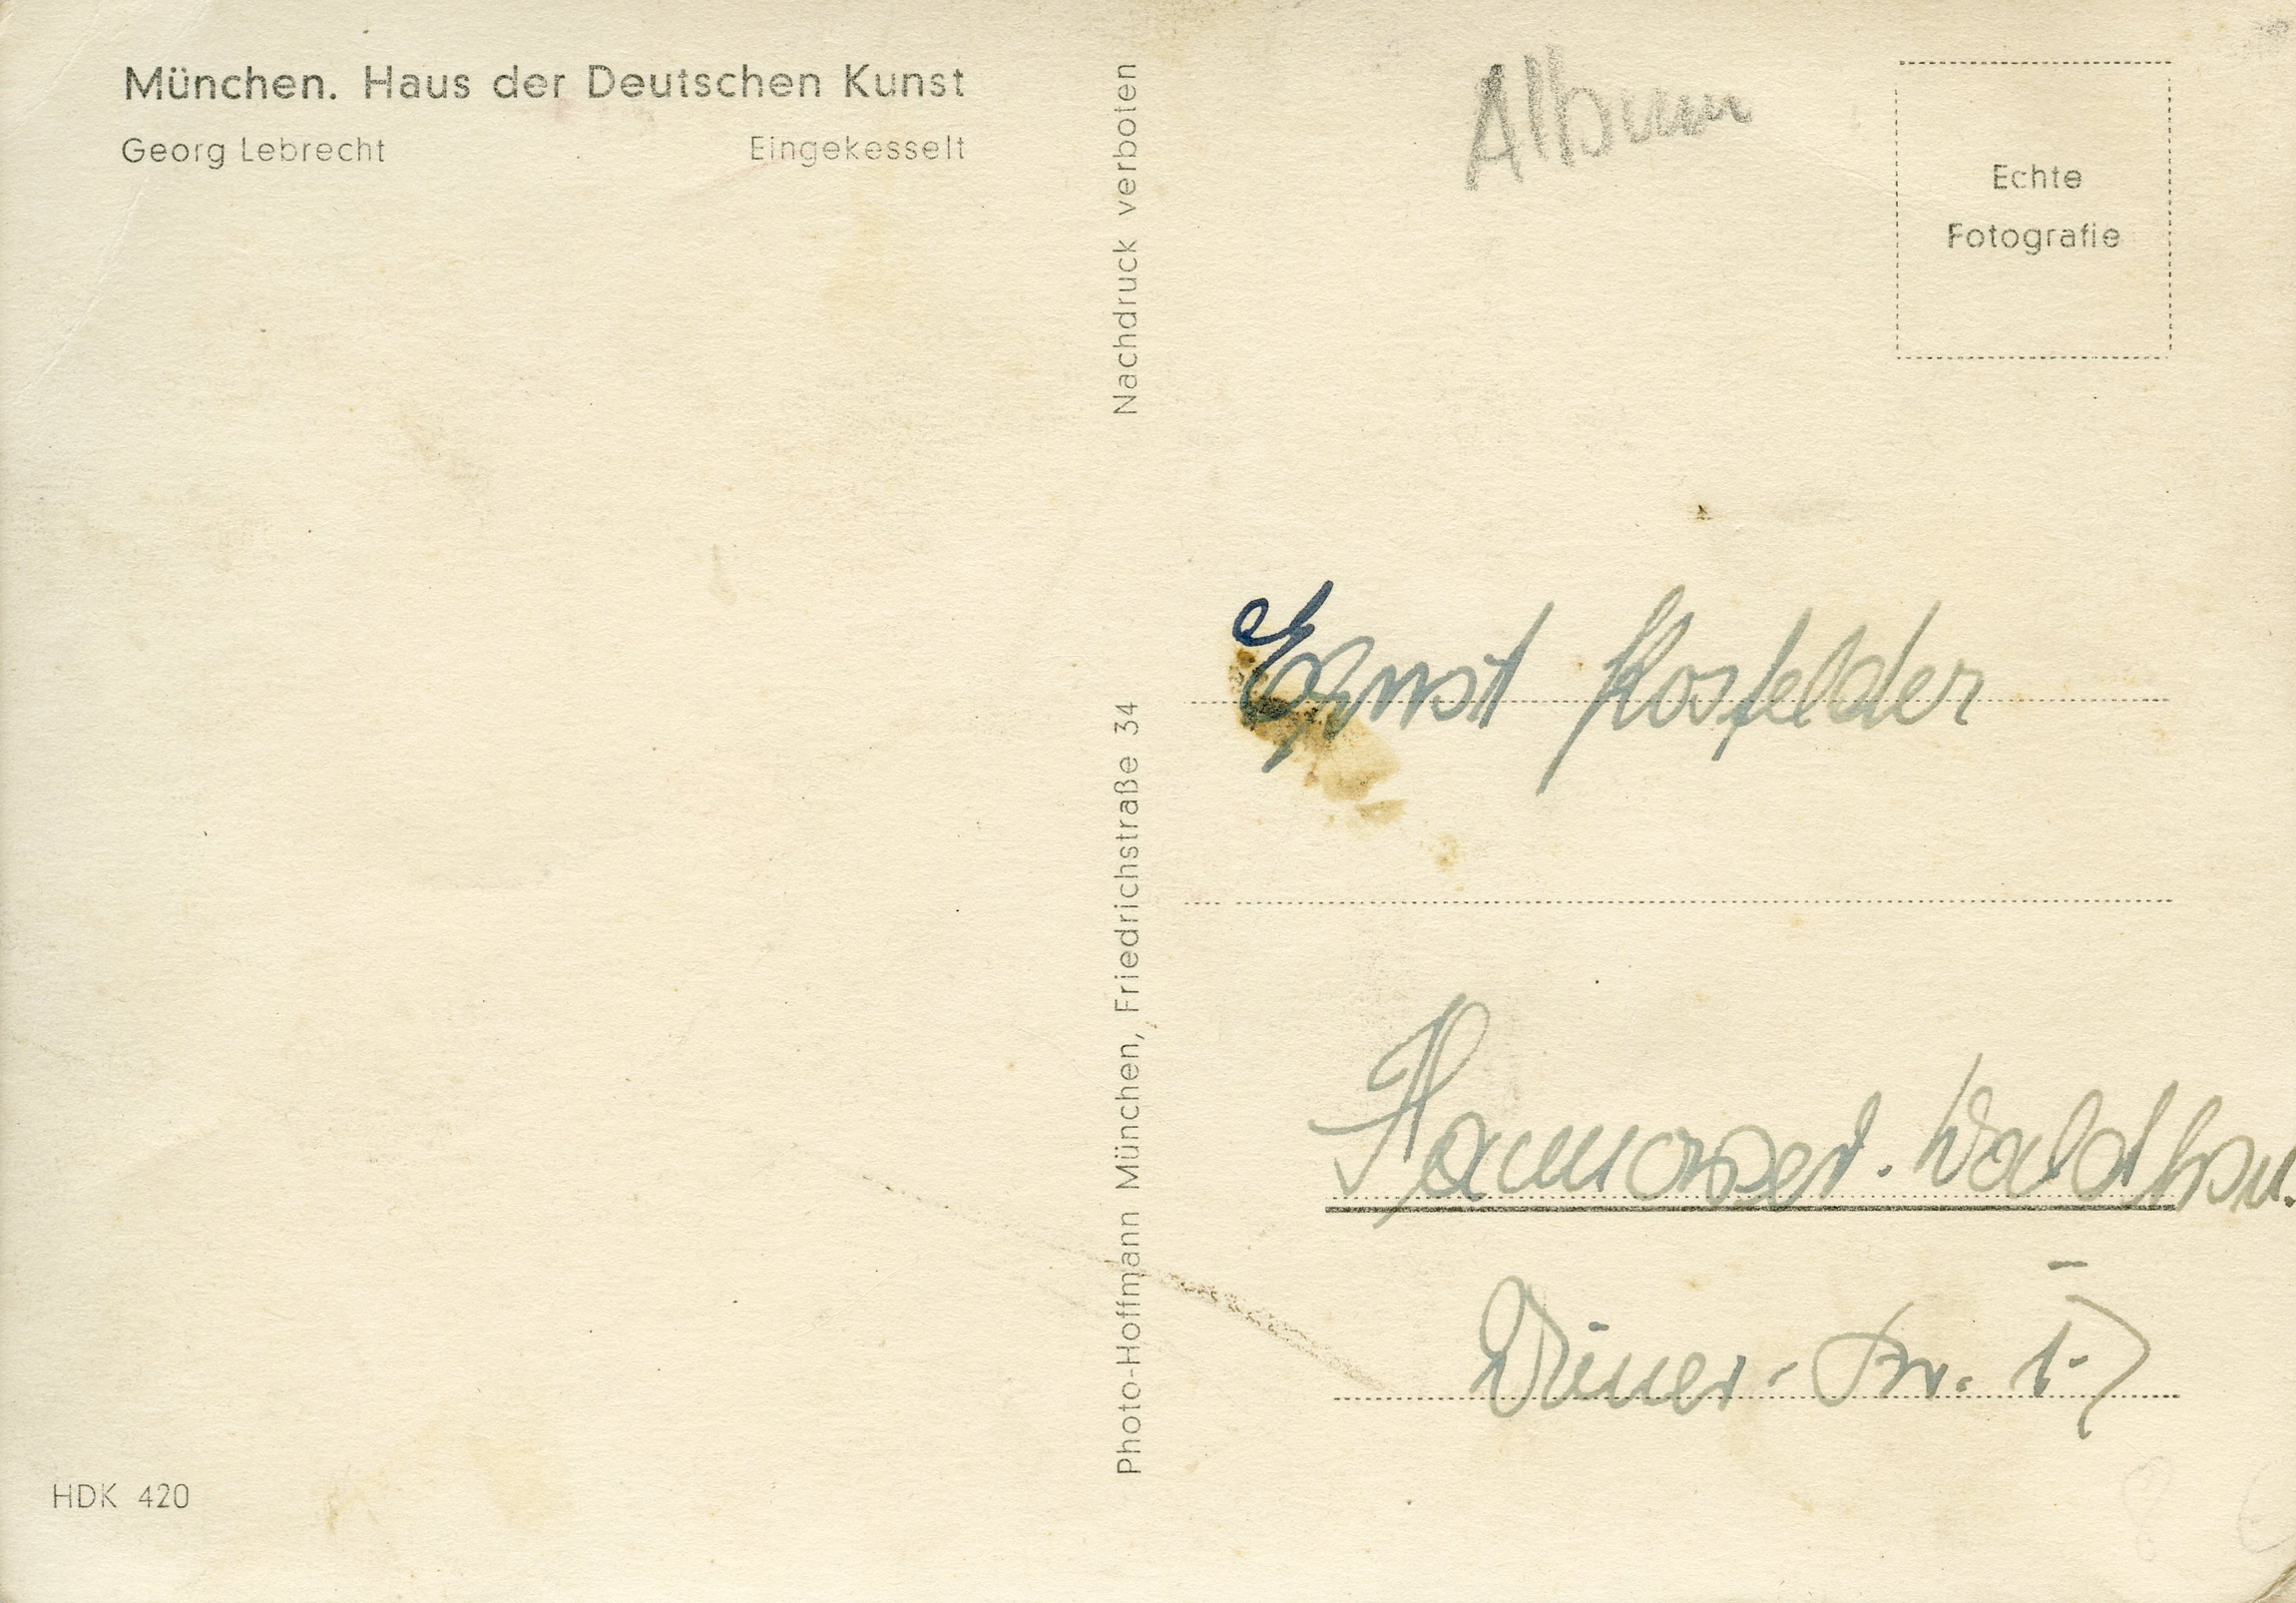 München. Haus der Deutschen Kunst
Georg Lebrecht Eingekesselt
HDK 420
Nachdruck verboten
Photo-Hoffmann München, Friedrichstraße 34
Album
Echte
Fotografie
Ernst Kosfelder
Hannover. Waldhau.